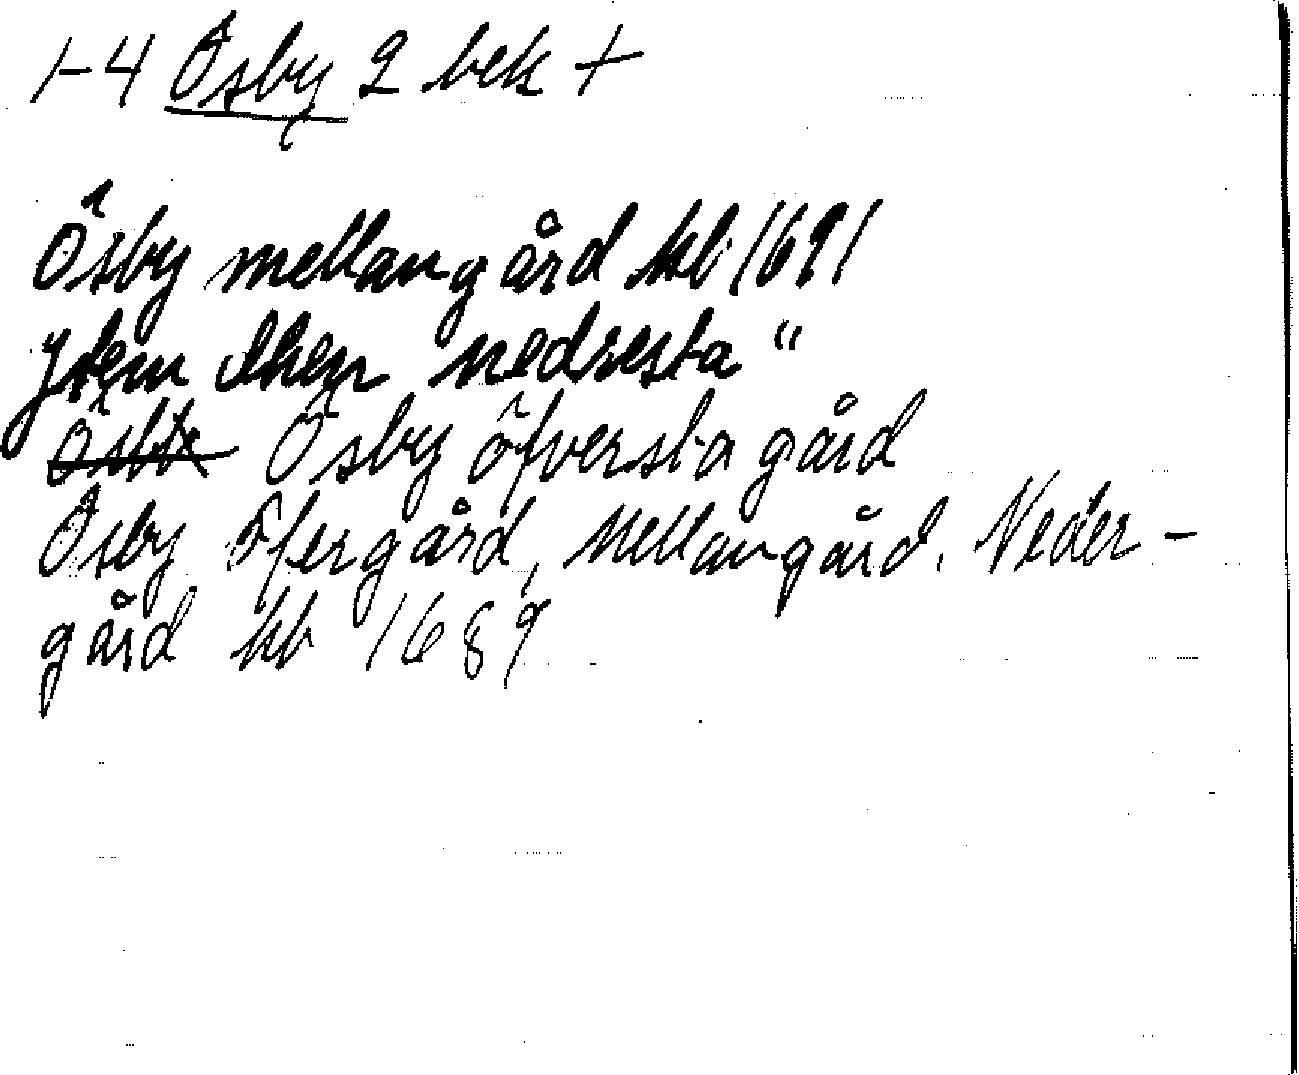 1-4 Ösby 2 bek +
Ösby mellangård kb 1691
Jtem then nedresta "
Ösby öfversta gård
Ösby öfergård, Mellangård. Neder-
gård kb 1689